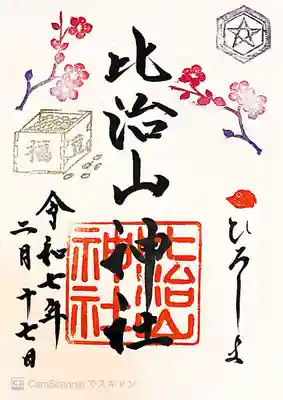 比治山神社
ひろしま
令和七年
二月十七日
福
比治山
神社
CS CamScanner でスキャン